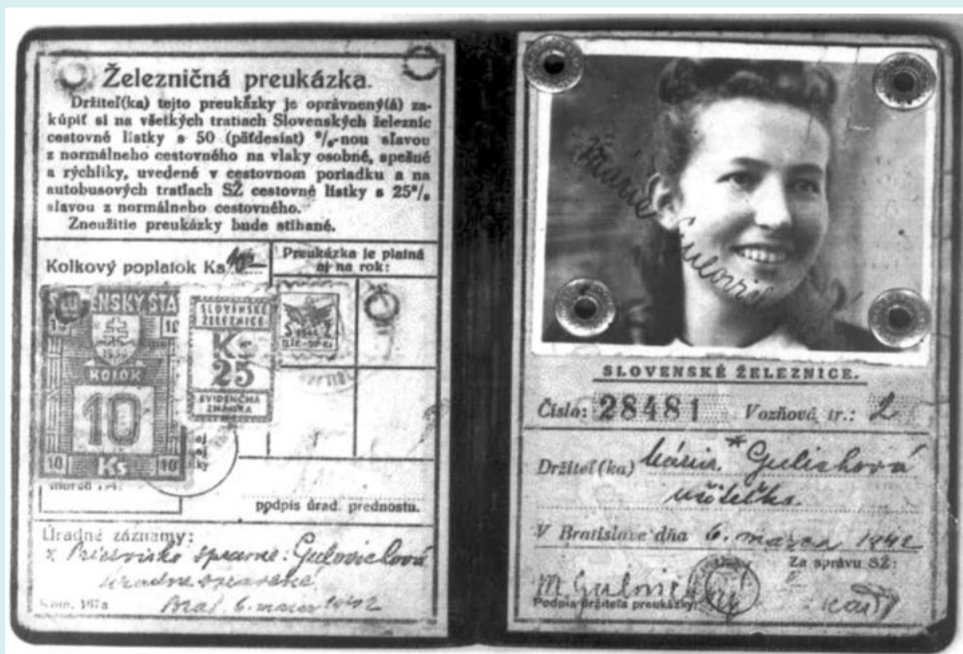 Železničná preukázka.
Držiteľ(ka) tejto preukázky je oprávnený(á) za-
kúpiť si na všetkých tratiach Slovenských železníc
cestovné lístky s 50 (päťdesiat) %-nou slavou
z normálneho cestovného na vlaky osobné, spešné
a rýchliky, uvedené v cestovnom poriadku a na
autobusových tratiach SŽ cestovné lístky s 25%
slavou z normálneho cestovného.
Zneužitie preukázky bude stíhané.
Kolkový poplatok Ks
Preukázka je platná
aj na rok:
SLOVENSKÝ ŠTÁT
10 10
1939
KOLOK
10
10 Ks 10
SLOVENSKÉ
ŽELEZNICE
Ks
25
EVIDENČNÁ
ZNÁMKA
podpis úrad. prednostu.
Úradné záznamy:
Priezvisko správne: Gulovichová
6. marca 1942
Kom. 167a
Mária Gulovič
SLOVENSKÉ ŽELEZNICE.
Číslo: 28481 Vozňová tr.: 2
Držiteľ(ka) Mária * Gulichová
učiteľka.
V Bratislave dňa 6. marca 1942
Za správu SŽ:
M. Gulovich
Podpis držiteľa preukázky: